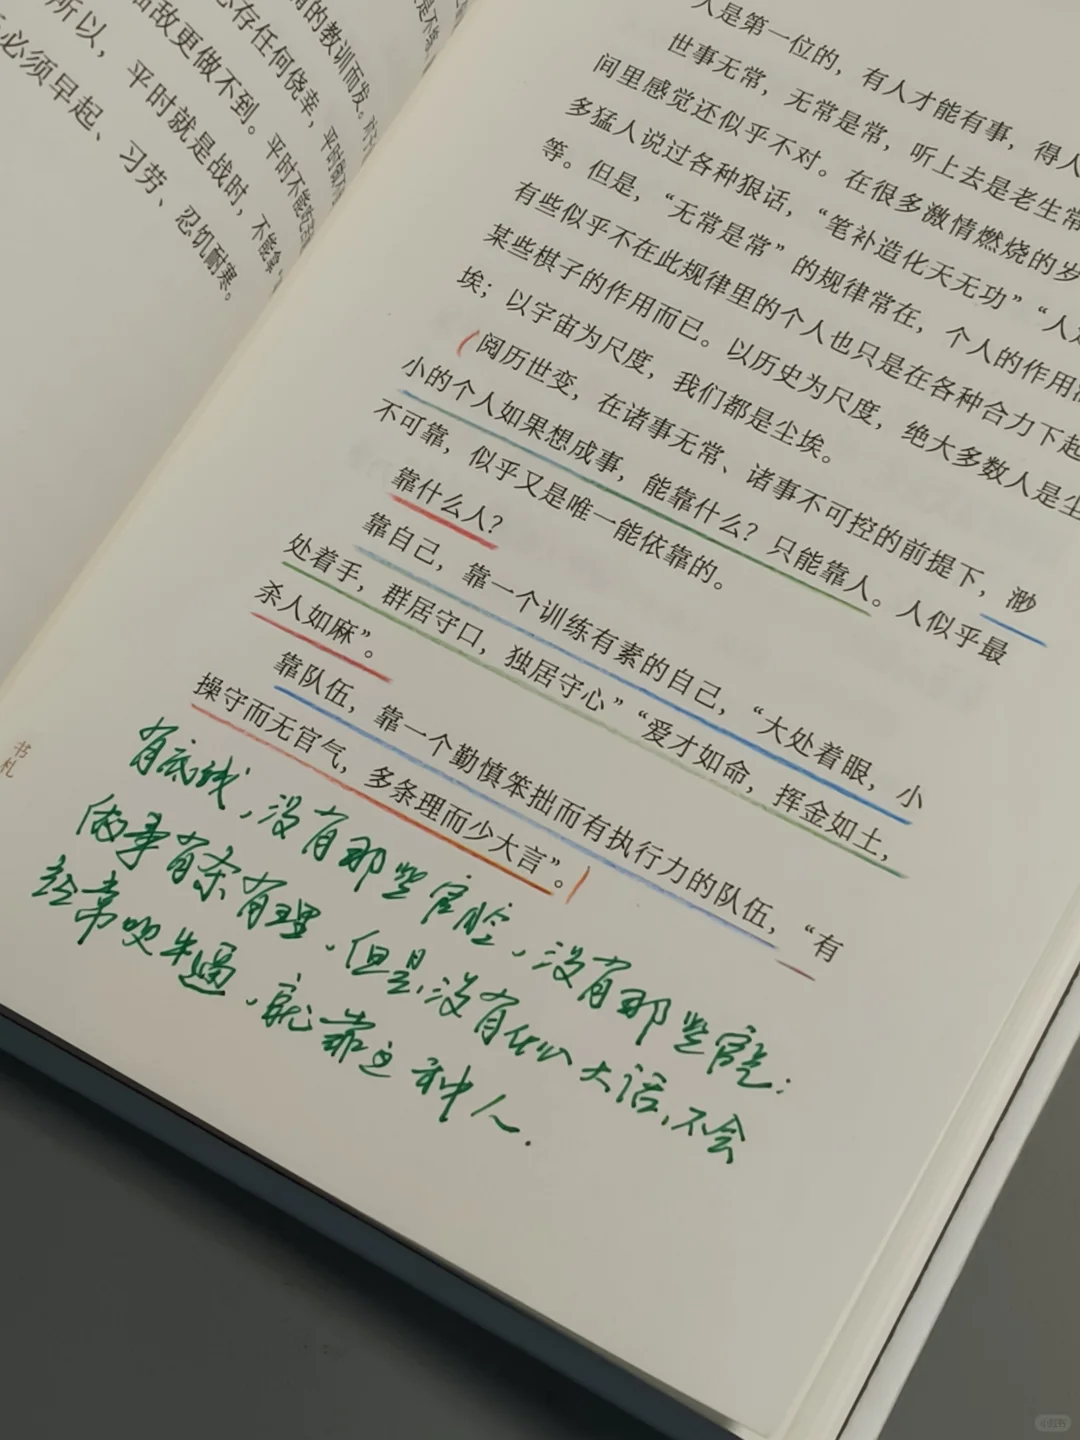 角的教训而发。
心存任何侥幸，平时做不
临敌更做不到。平时不惩
所以，平时就是战时，不能拿"
必须早起、习劳、忍饥耐寒。
书札
人是第一位的，有人才能有事，得人
世事无常，无常是常，听上去是老生常
间里感觉还似乎不对。在很多激情燃烧的岁
多猛人说过各种狠话，“笔补造化天无功”“人定
等。但是，“无常是常”的规律常在，个人的作用
有些似乎不在此规律里的个人也只是在各种合力下起
某些棋子的作用而已。以历史为尺度，绝大多数人是尘
埃；以宇宙为尺度，我们都是尘埃。
阅历世变，在诸事无常、诸事不可控的前提下，渺
小的个人如果想成事，能靠什么？只能靠人。人似乎最
不可靠，似乎又是唯一能依靠的。
靠什么人？
靠自己，靠一个训练有素的自己，“大处着眼，小
处着手，群居守口，独居守心”“爱才如命，挥金如土，
杀人如麻”。
靠队伍，靠一个勤慎笨拙而有执行力的队伍，“有
操守而无官气，多条理而少大言”。
有底线，没有那些官腔，没有那些官气；
做事有条有理，但是没有什么大话，不会
经常吹牛逼，就靠这种人.
小红书